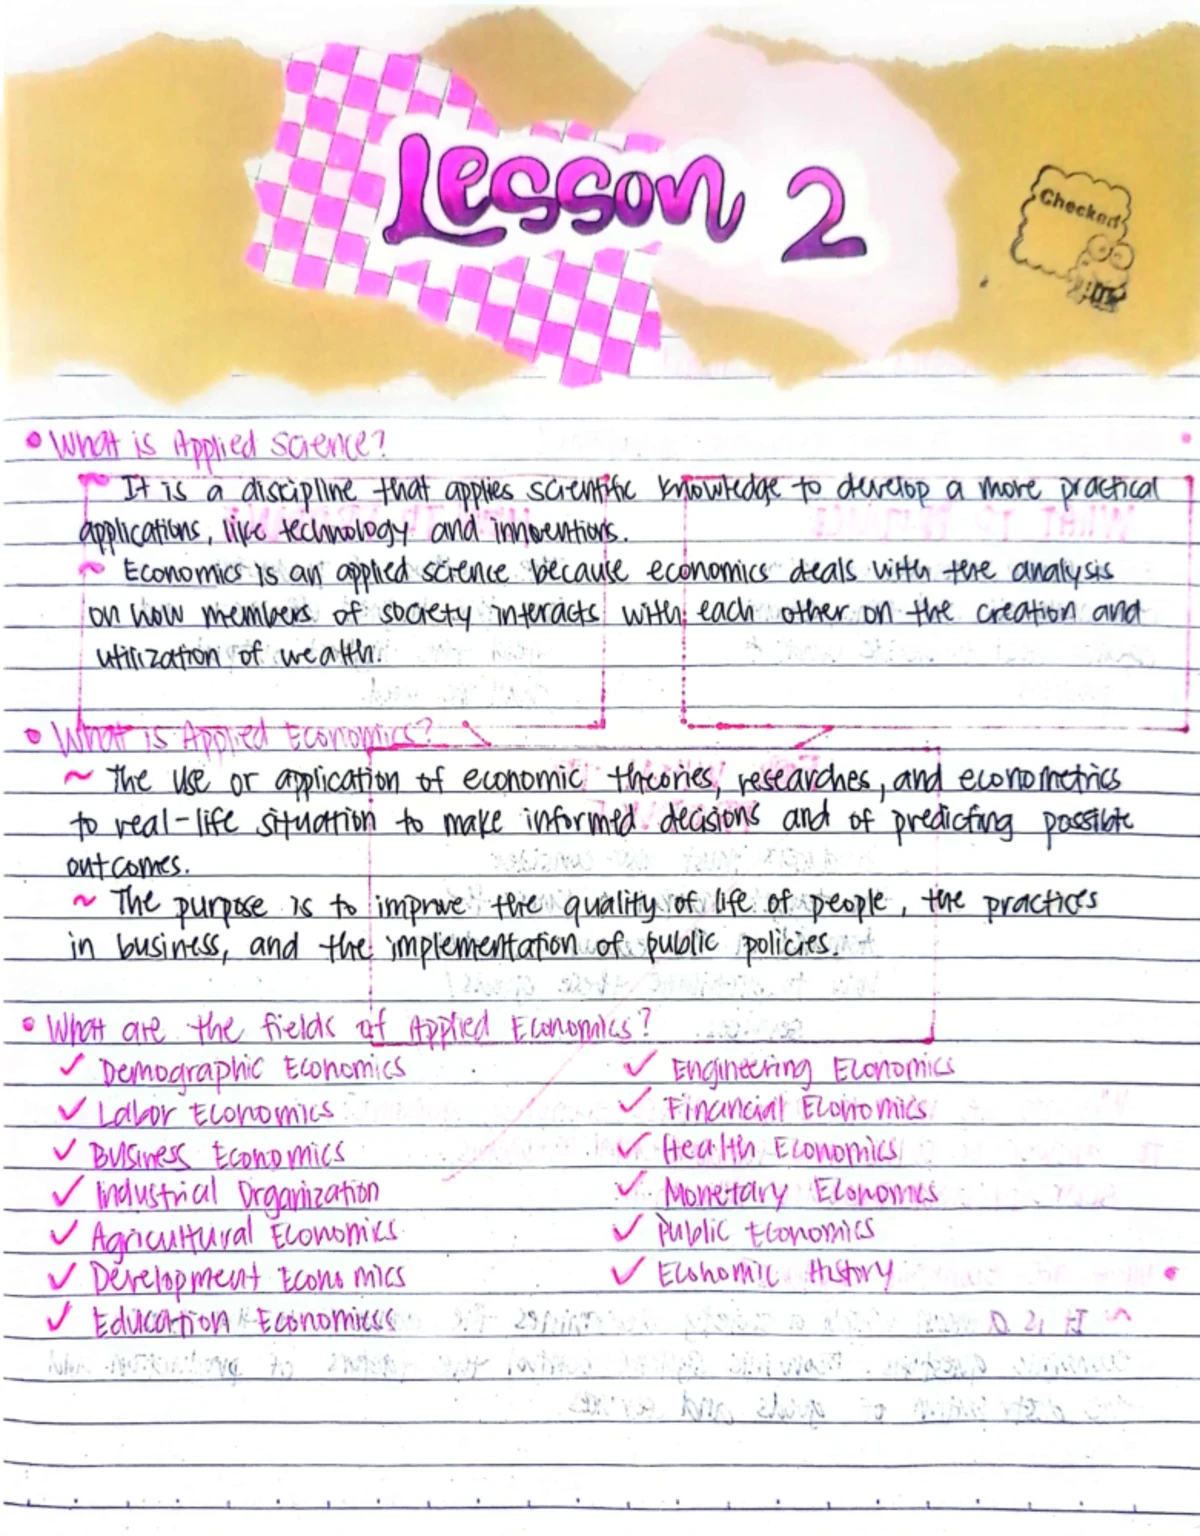 Lesson 2
Checked!
• What is Applied Science?
~ It is a discipline that applies scientific knowledge to develop a more practical
applications, like technology and innoventions.
~ Economics is an applied science because economics deals with the analysis
on how members of society interacts with each other on the creation and
utilization of wealth.
• What is Applied Economics?
~ The use or application of economic theories, researches, and econometrics
to real-life situation to make informed decisions and of predicting possible
outcomes.
~ The purpose is to improve the quality of life of people, the practices
in business, and the implementation of public policies.
• What are the fields of Applied Economics?
✓ Demographic Economics
✓ Labor Economics
✓ Business Economics
✓ Industrial Organization
✓ Agricultural Economics
✓ Development Economics
✓ Education Economics
✓ Engineering Economics
✓ Financial Economics
✓ Health Economics
✓ Monetary Economics
✓ Public Economics
✓ Economic History